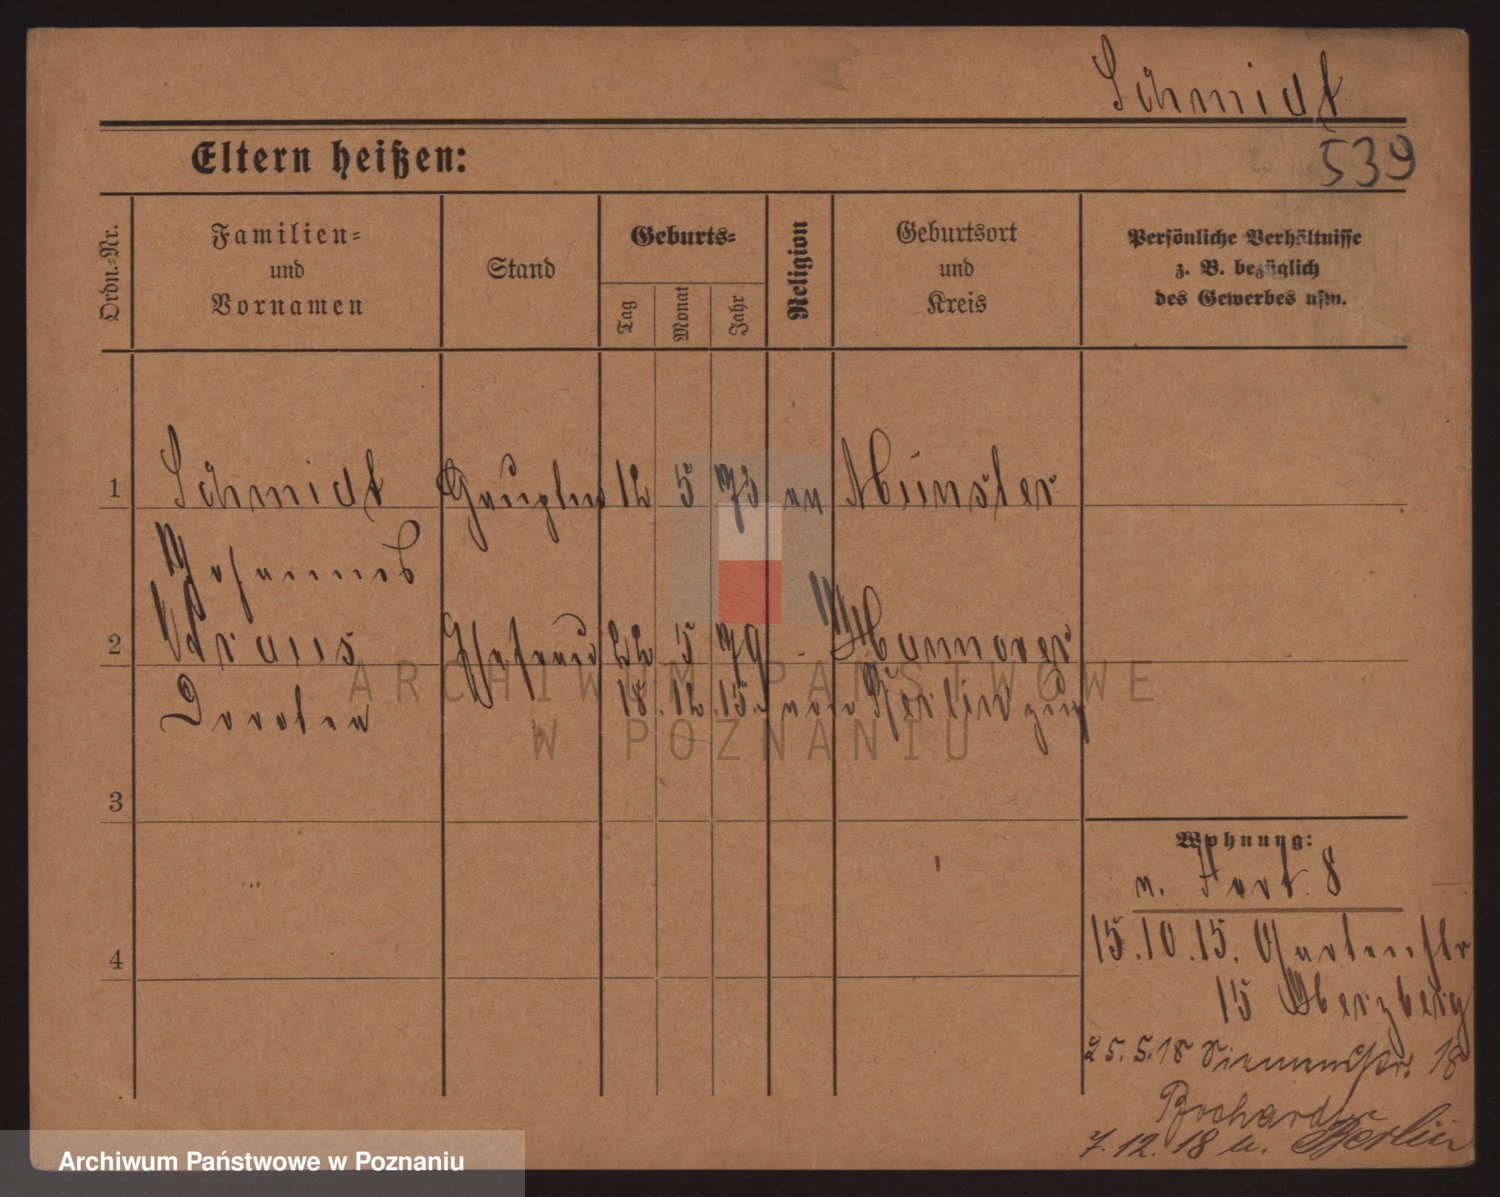 Schmidt
539
Eltern heißen:
Ordn.-Nr.
Familien-
und
Vornamen
Stand
Geburts-
Tag
Monat
Jahr
Religion
Geburtsort
und
Kreis
Persönliche Verhältnisse
z. B. bezüglich
des Gewerbes usw.
1 Schmidt 12 5 73 Münster
Johannes
2 Kraus Ehefrau 22 5 79 Hannover
Dorothea 18. 12. 15. Berlin
3
4
Wohnung:
n. Fort 8
15. 10. 15. Gartenstr
15
25. 5. 18 Siemensstr. 18
7. 12. 18 n. Berlin
ARCHIWUM PAŃSTWOWE
W POZNANIU
Archiwum Państwowe w Poznaniu